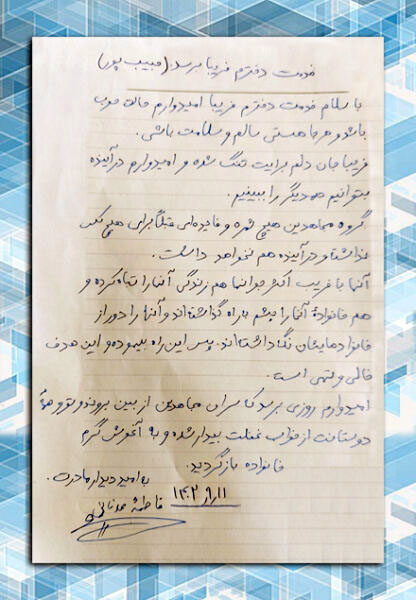 خدمت دخترم فریبا برسد. (حبیب پور)
با سلام خدمت دخترم فریبا امیدوارم حالت خوب
باشد و هر جا هستی سالم و سلامت باشی.
فریبا جان دلم برایت تنگ شده و امیدوارم در آینده
بتوانیم همدیگر را ببینیم.
گروه مجاهدین هیچ ثمره و فایده‌ای قبلاً برای هیچ کس
نداشته و در آینده هم نخواهد داشت.
آنها با فریب اکثر جوانها هم زندگی آنها را تباه کرده و
هم خانوادهٔ آنها را چشم به راه گذاشته‌اند و آنها را دور از
خانواده‌هایشان نگه داشته‌اند. پس این راه بیهوده و این هدف
خالی و تهی است.
امیدوارم روزی برسد که سران مجاهدین از بین بروند و تو و همهٔ
دوستانت از خواب غفلت بیدار شده و به آغوش گرم
خانواده بازگردید.
به امید دیدار مادرت.
فاطمه